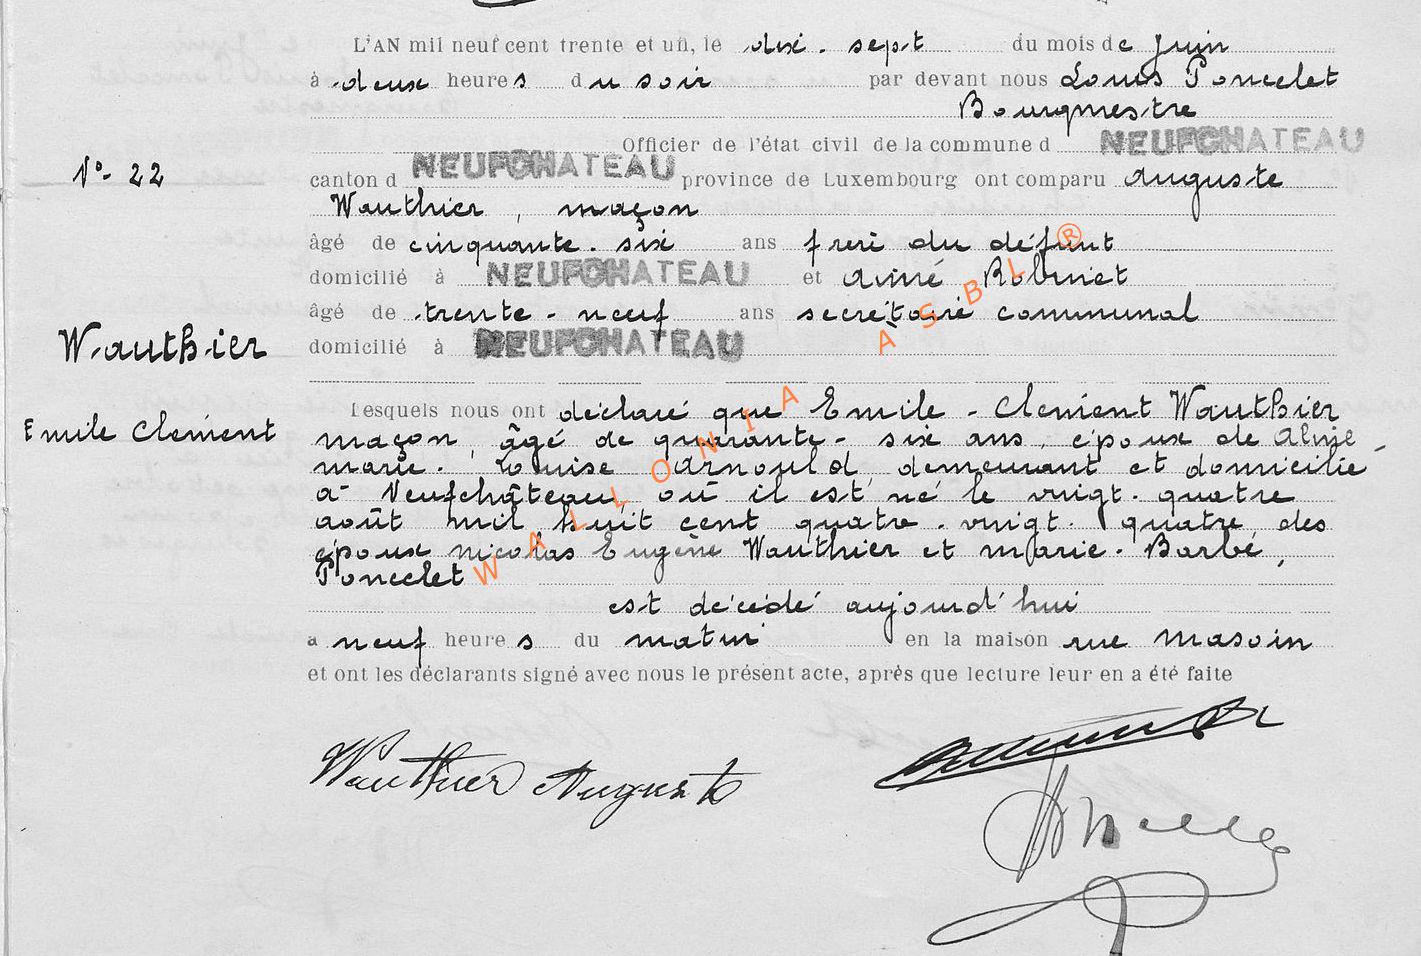 L'AN mil neuf cent trente et un, le dix-sept du mois de Juin
à deux heures du soir par devant nous Louis Poncelet
Bourgmestre
Officier de l'état civil de la commune d NEUFCHATEAU
N°- 22
canton d NEUFCHATEAU province de Luxembourg ont comparu Auguste
Wauthier, maçon
âgé de cinquante-six ans frère du défunt
domicilié à NEUFCHATEAU et Aimé Robinet
âgé de trente-neuf ans secrétaire communal
Wauthier
domicilié à NEUFCHATEAU
Emile Clément
Lesquels nous ont déclaré que Emile-Clément Wauthier
maçon, âgé de quarante-six ans, époux de Aline
Marie-Louise Arnould demeurant et domicilié
à Neufchâteau où il est né le vingt-quatre
août mil huit cent quatre-vingt-quatre des
époux Nicolas Eugène Wauthier et Marie-Barbe,
Poncelet
est décédé aujourd'hui
a neuf heures du matin en la maison rue Masoin
et ont les déclarants signé avec nous le présent acte, après que lecture leur en a été faite
Wauthier Auguste
WALLONIA ASBL ®